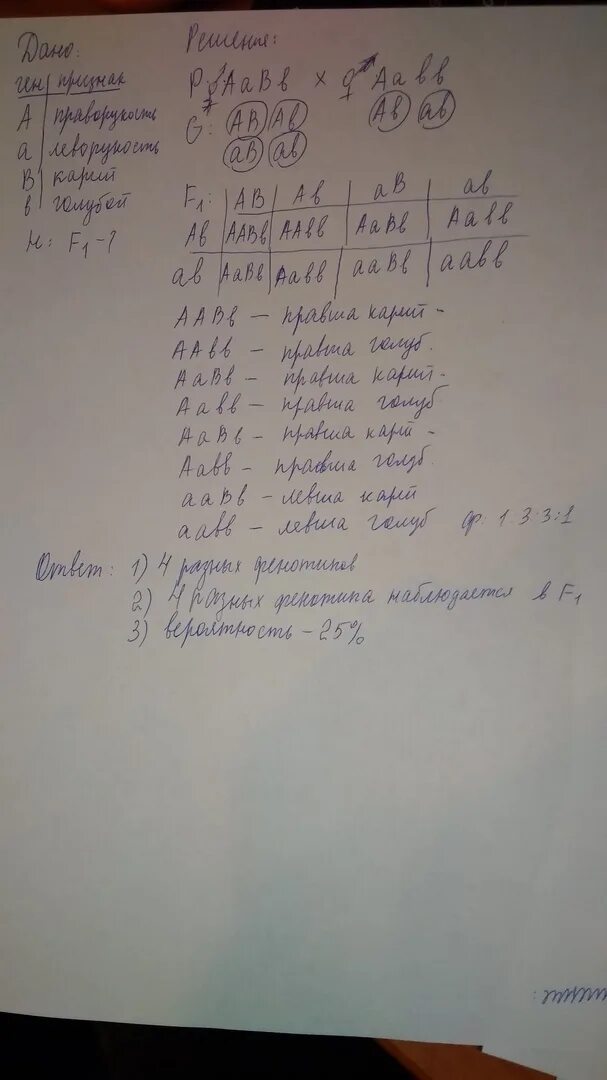 Дано:
ген признак
А праворукость
а леворукость
В карий
в голубой
Н: F₁-?
Решение:
Р АаВв х ♀ Аавв
G: АВ Ав Ав ав
аВ ав
F₁: АВ Ав аВ ав
Ав ААВв ААвв АаВв Аавв
ав АаВв Аавв ааВв аавв
ААВв – правша карий -
ААвв – правша голуб.
АаВв – правша карий-
Аавв – правша голуб
АаВв – правша карий -
Аавв – правша голуб.
ааВв – левша карий
аавв – левша голуб ф: 1:3:3:1
Ответ: 1) 4 разных фенотипов
2) 4 разных фенотипа наблюдается в F₁
3) вероятность – 25%